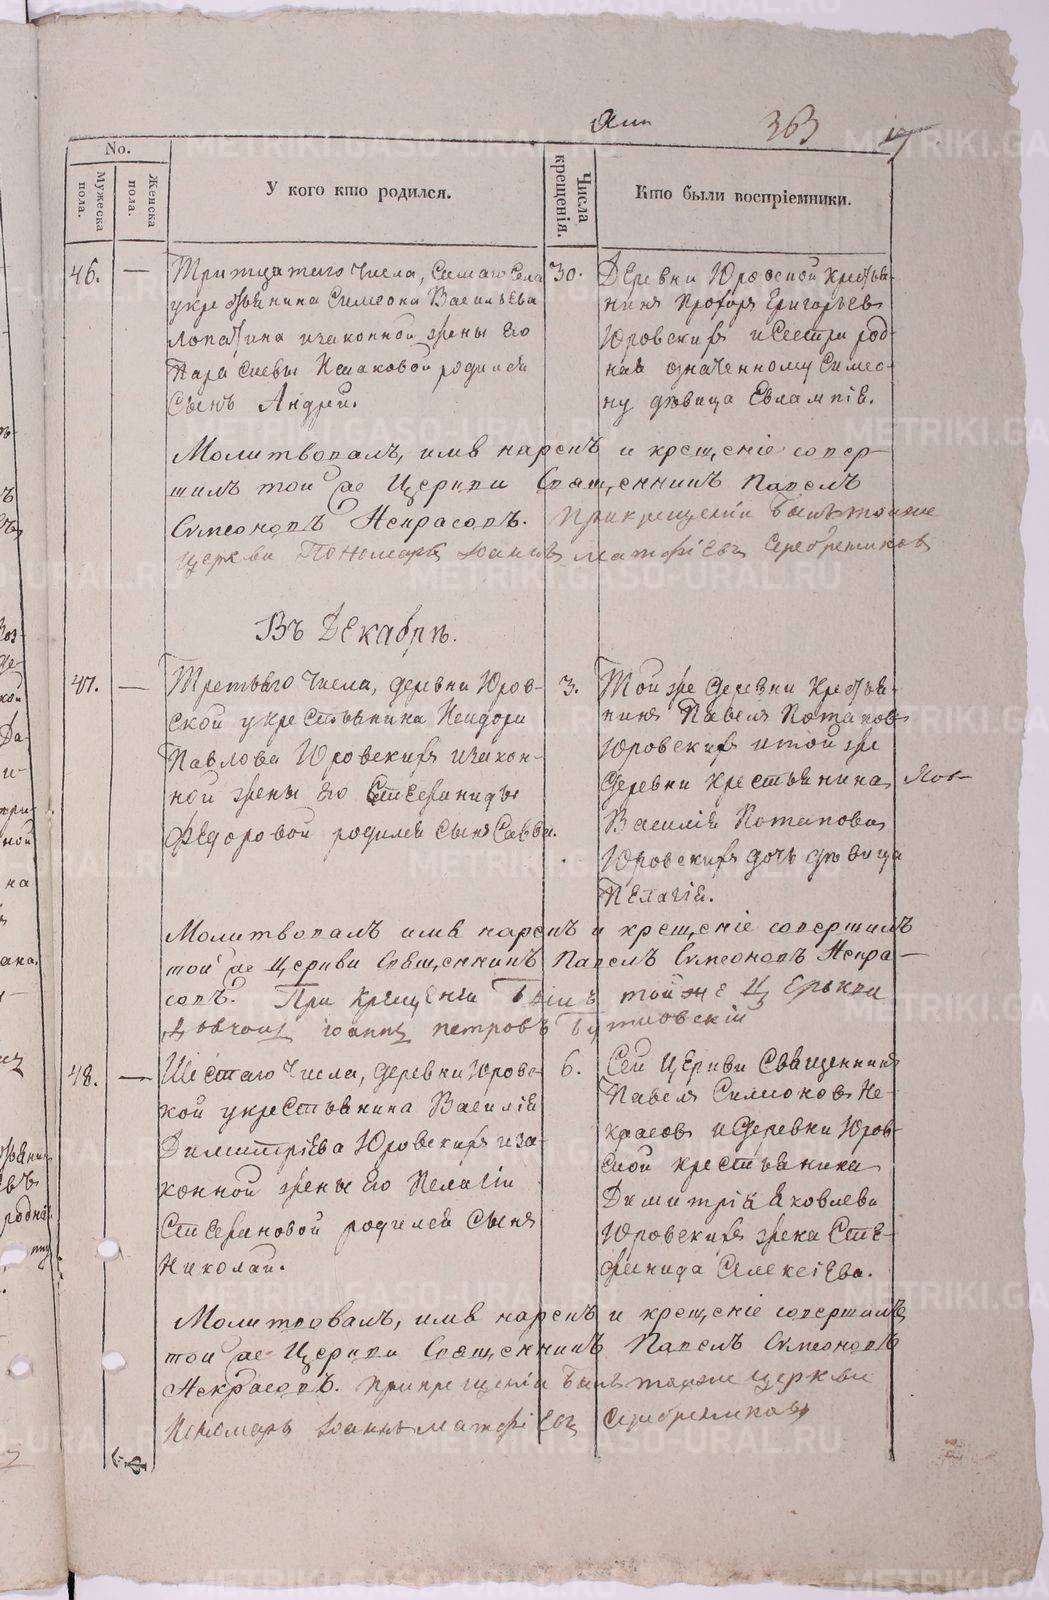 363
No.
Мужеска пола.
Женска пола.
У кого кто родился.
Числа крещенія.
Кто были воспріемники.
46. —
Тритцатого Числа, Самаго Села
укрестьянина Симеона Васильева
Лопатина изаконной жены Его
Парасковьи Исаковой родился
Сынъ Андрей.
30.
Деревни Юровской Крестья-
нинъ Прохоръ Григорьевъ
Юровскихъ и Сестра род-
ная означенному Симео-
ну дѣвица Евлампія.
Молитвовалъ, имя нарекъ и крещеніе совер-
шилъ той же Церкви Священникъ Павелъ
Симеоновъ Некрасовъ. Прикрещеніи былъ тойже
церкви Пономарь Іоаннъ Матфіевъ Серебрениковъ
Въ Декабрѣ.
47. —
Третьяго Числа, деревни Юров-
ской укрестьянина Исидора
Павлова Юровскихъ изакон-
ной жены Его Стефаниды
Федоровой родился Сынъ Савва.
3.
Той же деревни Крестья-
нинъ Павелъ Потаповъ
Юровскихъ итой же
деревни крестьянина
Василія Потапова
Юровскихъ дочь дѣвица
Пелагія.
Молитвовалъ имя нарекъ и крещеніе совершилъ
той же Церкви Священникъ Павелъ Симеоновъ Некра-
совъ. При крещеніи былъ той же Церькви
Іоаннъ Петровъ
48. —
Шестаго Числа, деревни Юровс-
кой укрестьянина Василія
Димитріева Юровскихъ иза-
конной жены Его Пелагіи
Стефановой родился Сынъ
Николай.
6.
Сей Церкви Священникъ
Павелъ Симеоновъ Не-
красовъ и деревни Юров-
ской крестьянина
Димитрія Яковлева
Юровскихъ жена Сте-
фанида Алексіева.
Молитвовалъ, имя нарекъ и крещеніе совершилъ
той же Церкви Священникъ Павелъ Симеоновъ
Некрасовъ. Прикрещеніи былъ тойже церкви
Пономарь Іоаннъ Матфіевъ Серебрениковъ
METRIKI.GASO-URAL.RU